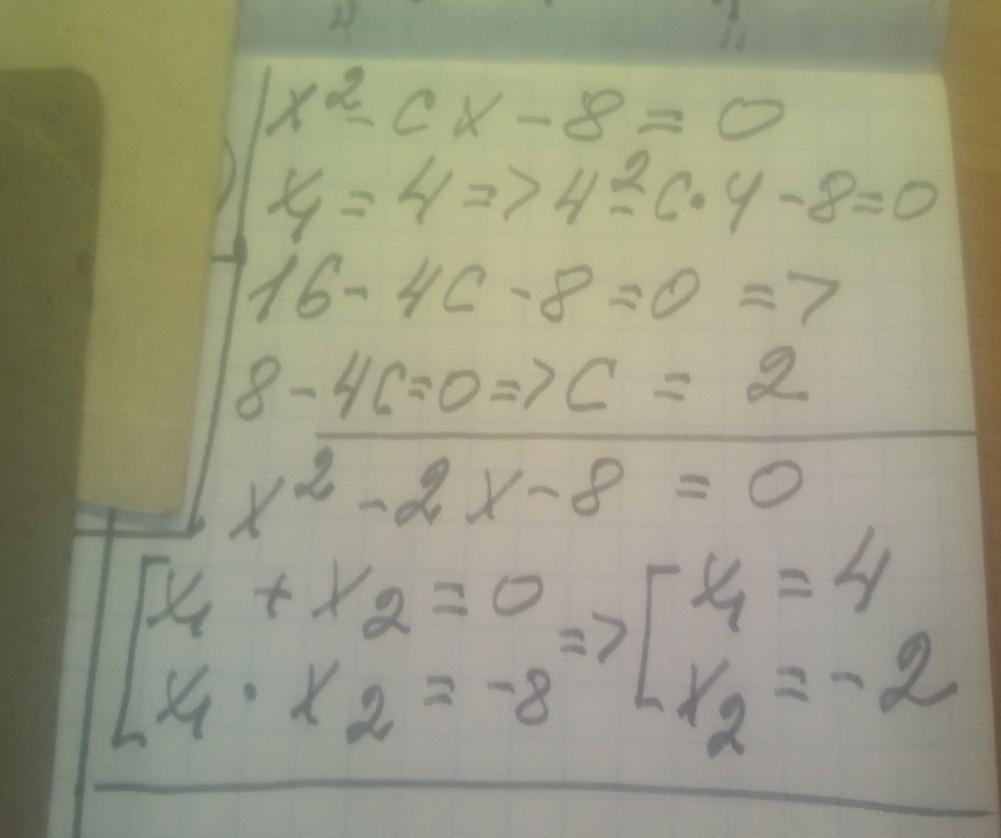 x² - cx - 8 = 0
x₁ = 4 => 4² - c·4 - 8 = 0
16 - 4c - 8 = 0 =>
8 - 4c = 0 => c = 2
x² - 2x - 8 = 0
[x₁ + x₂ = 0 => [x₁ = 4
x₁ · x₂ = -8 x₂ = -2